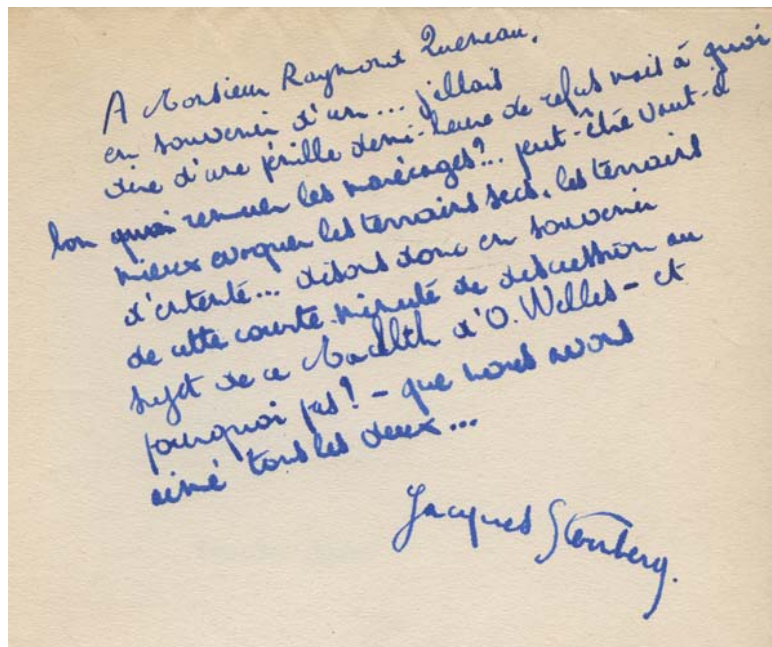 A Monsieur Raymond Queneau,
en souvenir d'un... j'allais
dire d'une pénible demi-heure de refus mais à quoi
bon remuer les marécages?... peut-être vaut-il
mieux évoquer les terrains secs, les terrains
d'entente... disons donc en souvenir
de cette courte minute de discussion au
sujet de ce Macbeth d'O. Welles - et
pourquoi pas! - que nous avons
aimé tous les deux...
Jacques Sternberg.